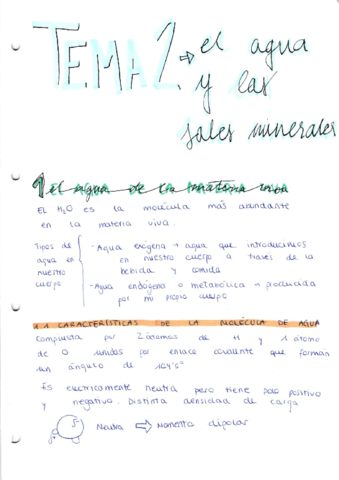 TEMA 2 → el agua
y las
sales minerales
1 el agua de la materia viva
El H2O es la molécula más abundante
en la materia viva.
Tipos de
agua en
nuestro
cuerpo
- Agua exógena → agua que introducimos
en nuestro cuerpo a través de la
bebida y comida
- Agua endógena o metabólica → producida
por mi propio cuerpo
1.1 CARACTERÍSTICAS DE LA MOLÉCULA DE AGUA
Compuesta por 2 átomos de H y 1 átomo
de O unidos por enlace covalente que forman
un ángulo de 104'5°
Es eléctricamente neutra pero tiene polo positivo
y negativo. Distinta densidad de carga
Neutra ⇒ Momento dipolar